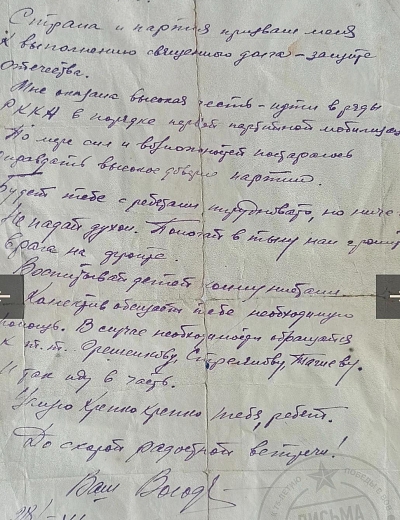 Страна и партия призвали меня
к выполнению священного долга - защите
отечества.
Мне оказана высокая честь - идти в ряды
РККА в порядке первой партийной мобилизац
По мере сил и возможностей постараюсь
оправдать высокое доверие партии.
Будет тебе с ребятами трудновато, но ниче
Не падай духом. Помогай в тылу нам громи
врага на фронте.
Воспитывай детей коммунистами.
Колектив обещает тебе необходимую
помощь. В случае необходимости обращайся
к т.т.
И так иду в часть.
Целую крепко крепко тебя, ребят.
До скорой радостной встречи!
Ваш
ПИСЬМА